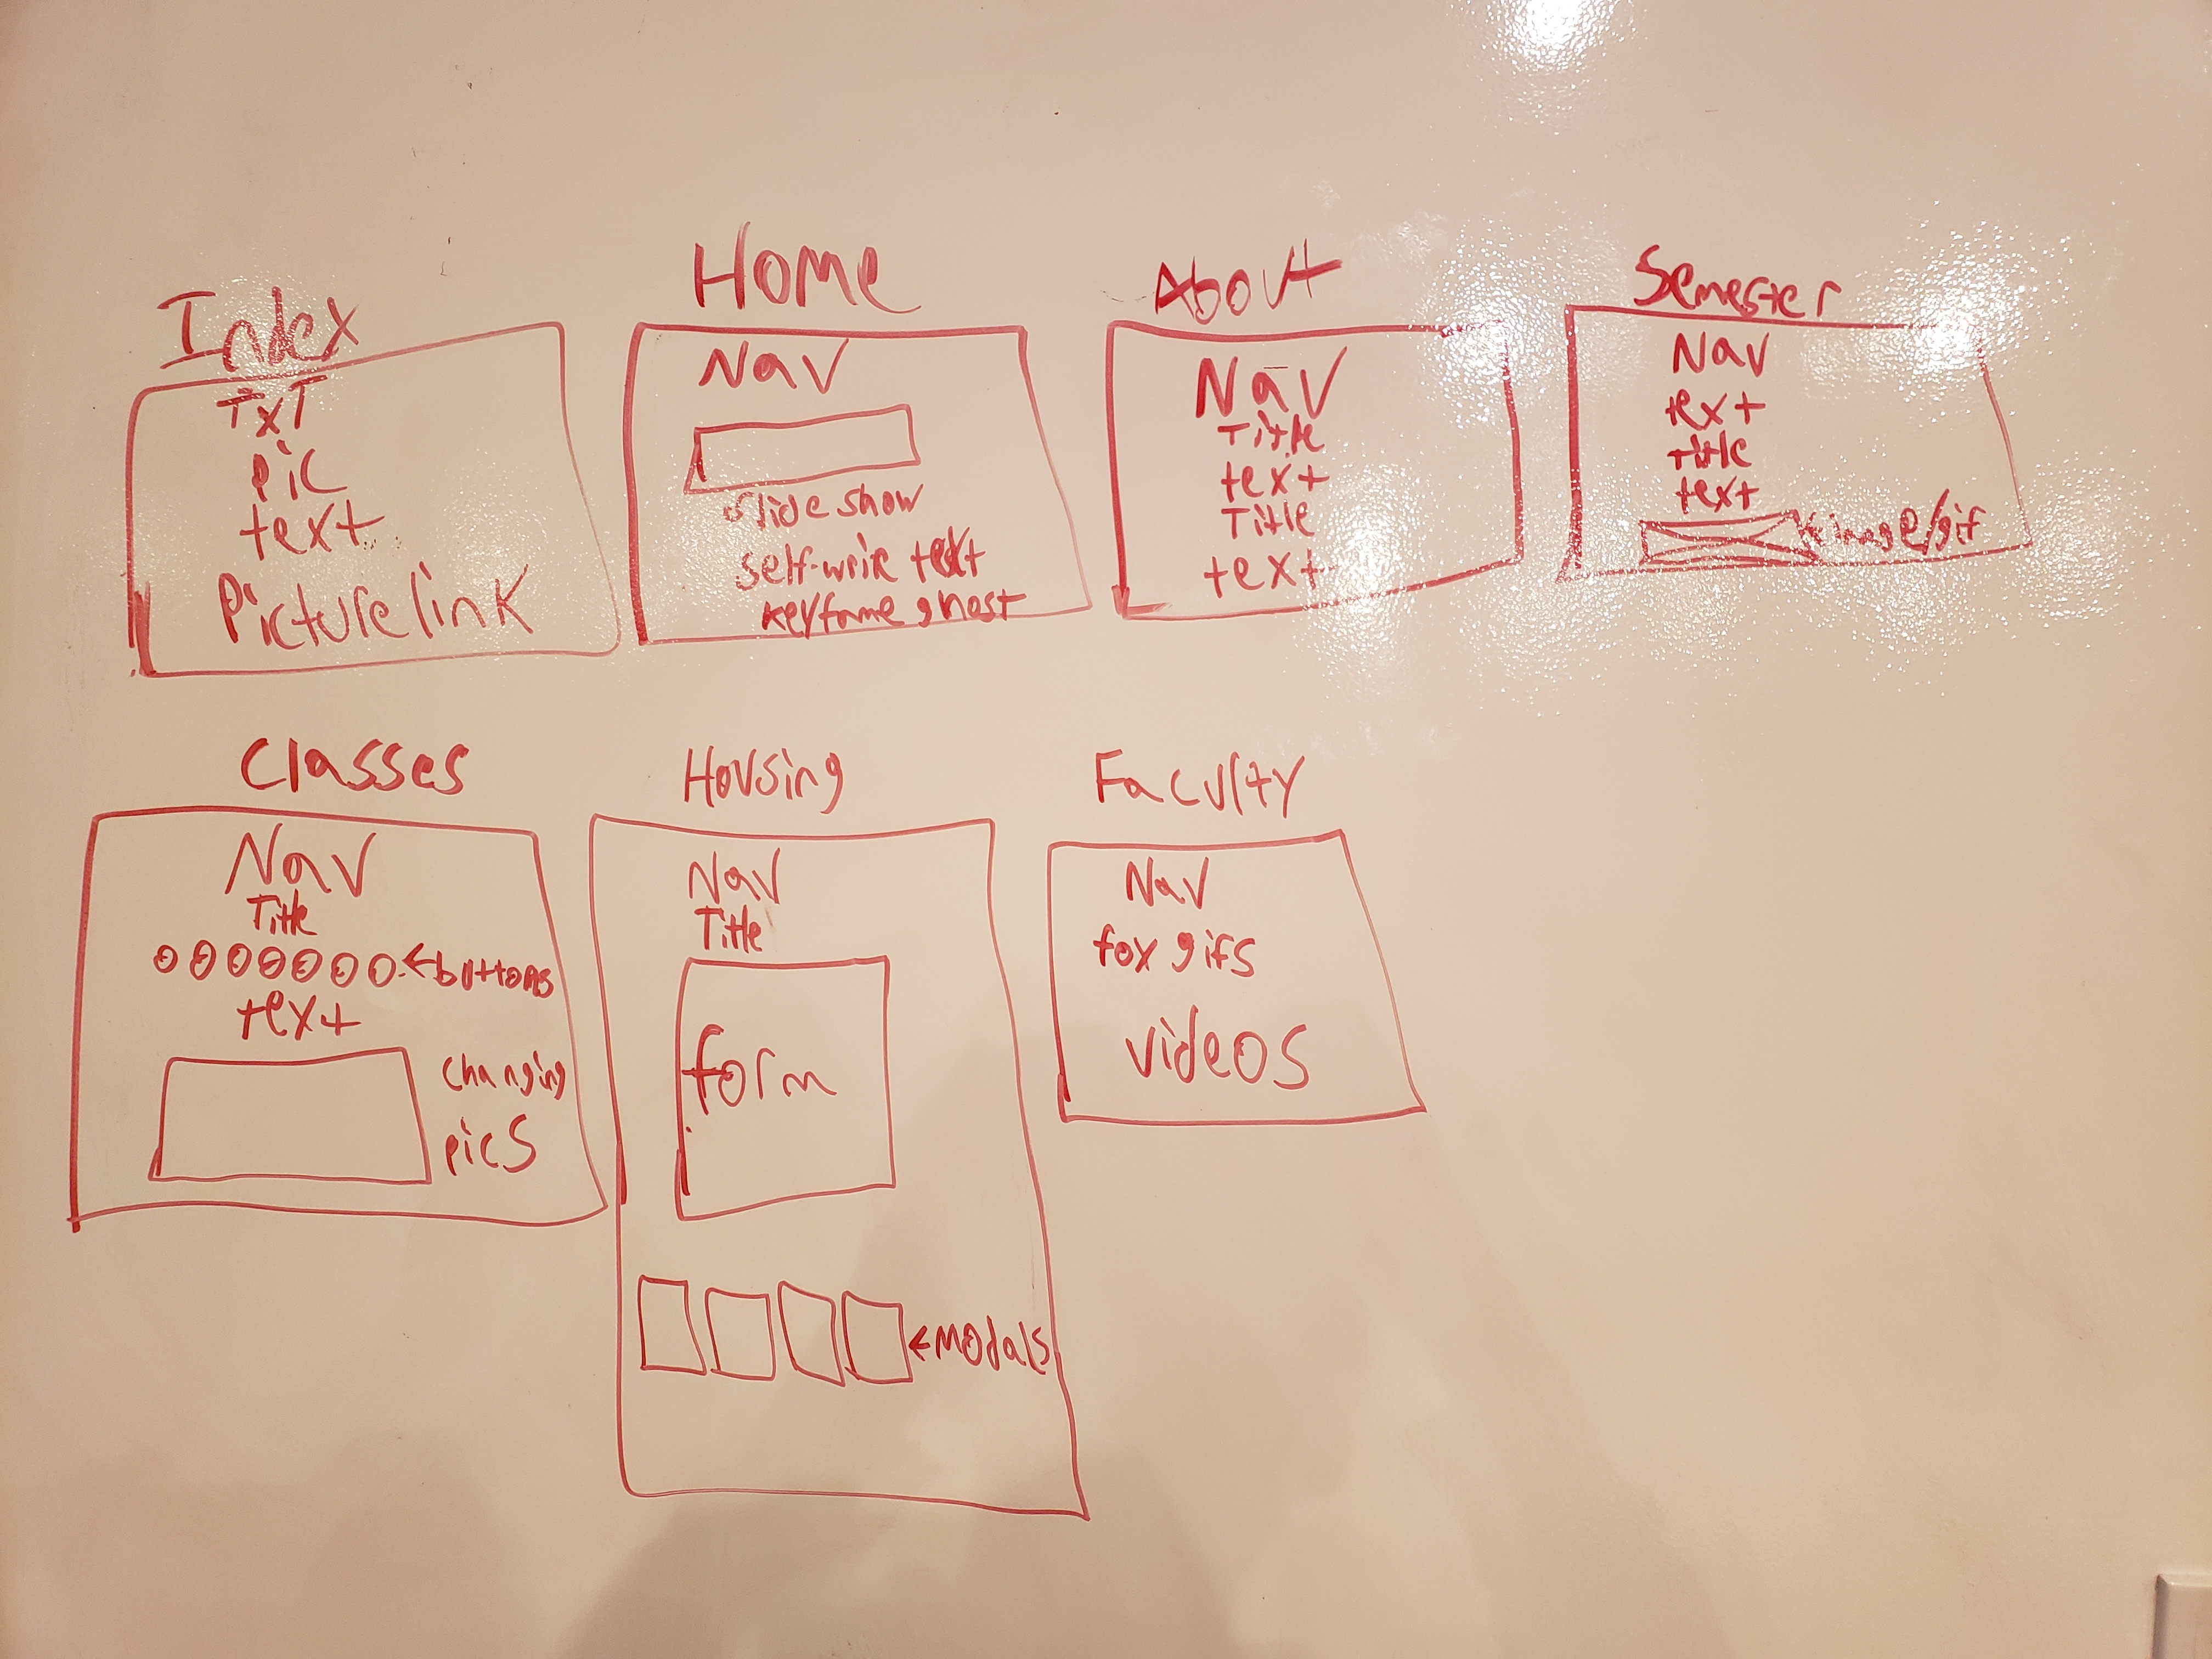 Index
TxT
pic
text
Picture link
Home
Nav
slide show
self-write text
keyframe ghost
About
Nav
Title
text
Title
text
Semester
Nav
text
title
text
←image/gif
Classes
Nav
Title
←buttons
text
changing
pics
Housing
Nav
Title
form
←modals
Faculty
Nav
fox gifs
videos